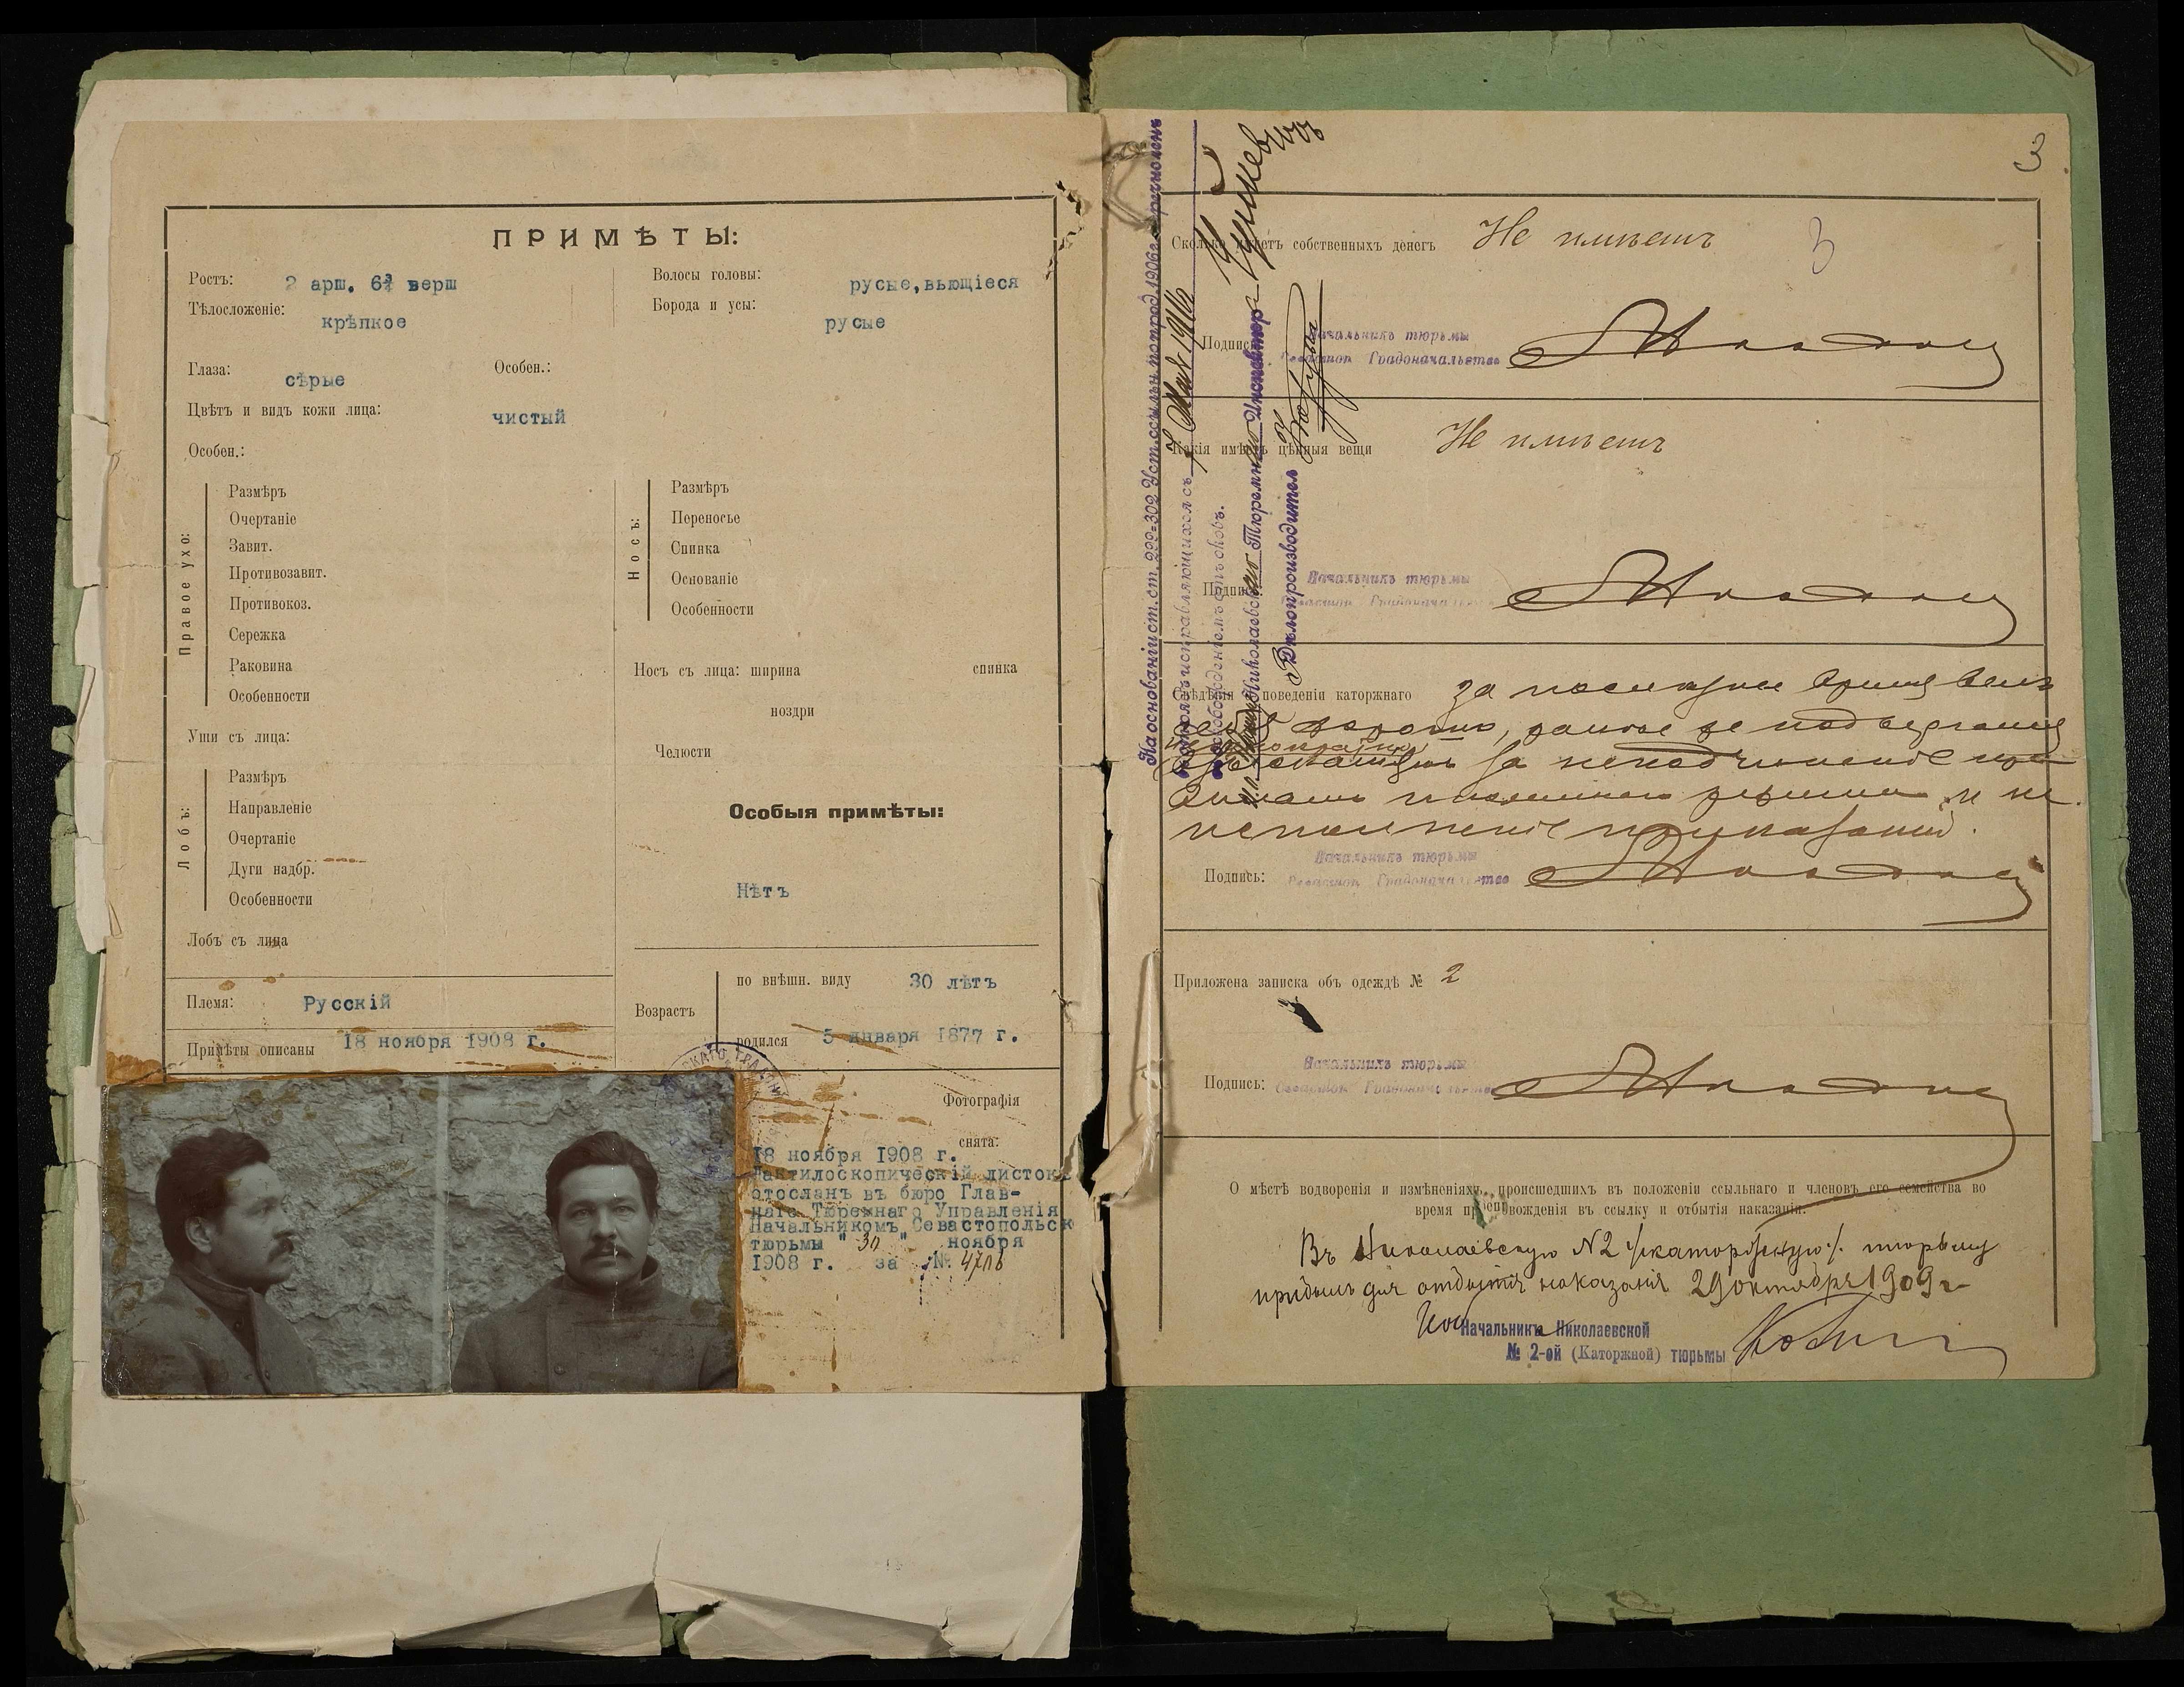 ПРИМѢТЫ:
Ростъ: 2 арш. 6¾ верш
Волосы головы: русые, вьющіеся
Тѣлосложеніе: крѣпкое
Борода и усы: русые
Глаза: сѣрые
Особен.:
Цвѣтъ и видъ кожи лица: чистый
Особен.:
Правое ухо:
Размѣръ
Очертаніе
Завит.
Противозавит.
Противокоз.
Сережка
Раковина
Особенности
Носъ:
Размѣръ
Переносье
Спинка
Основаніе
Особенности
Носъ съ лица: ширина спинка
ноздри
Уши съ лица:
Челюсти
Лобъ:
Размѣръ
Направленіе
Очертаніе
Дуги надбр.
Особенности
Лобъ съ лица
Особыя примѣты:
Нѣтъ
Племя: Русскій
Примѣты описаны 18 ноября 1908 г.
Возрастъ
по внѣшн. виду 30 лѣтъ
родился 5 января 1877 г.
Фотографія
снята:
18 ноября 1908 г.
Дактилоскопическій листокъ
отосланъ въ бюро Глав-
наго Тюремнаго Управленія
Начальникомъ Севастопольск
тюрьмы "30" ноября
1908 г. за №
3
3
Сколько имѣетъ собственныхъ денегъ Не имѣетъ
Подпись: Начальникъ тюрьмы
Градоначальства
Какія имѣетъ цѣнныя вещи Не имѣетъ
Подпись: Начальникъ тюрьмы
Градоначальства
Свѣдѣнія о поведеніи каторжнаго за послѣднее время велъ
себя хорошо, ранѣе же подвергался
за неподчиненіе
режима и не
исполненіе приказаній.
Подпись: Начальникъ тюрьмы
Градоначальства
Приложена записка объ одеждѣ № 2
Подпись: Начальникъ тюрьмы
Градоначальства
О мѣстѣ водворенія и измѣненіяхъ, происшедшихъ въ положеніи ссыльнаго и членовъ его семейства во
время препровожденія въ ссылку и отбытія наказанія.
Въ Николаевскую №2 /каторжную/. тюрьму
прибылъ для отбытія наказанія 29 октября 1909 г
Начальникъ Николаевской
№ 2-ой (Каторжной) тюрьмы
На основаніи ст.ст. 299-302 Уст. ссыльн. по прод. 1906 г.
исправляющихся съ 7 Мая 1916
освобожденіемъ отъ оковъ.
Николаевскаго Тюремнаго Инспектора
Дѣлопроизводитель